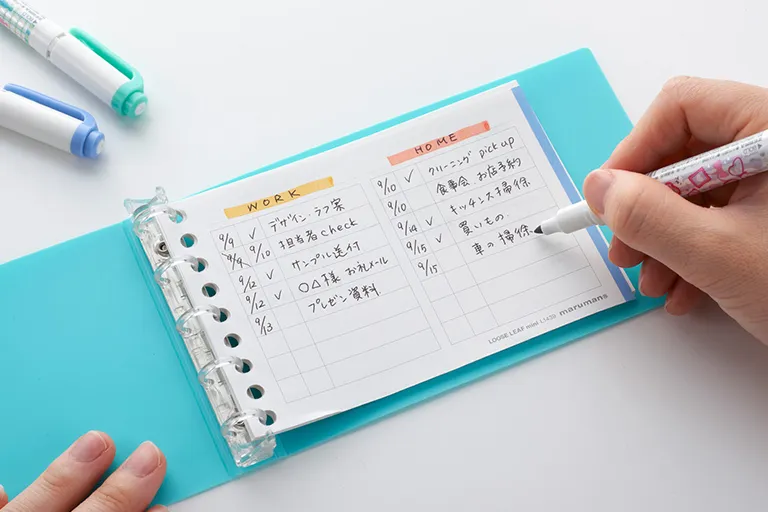 WORK
9/9 ✓ デザイン・ラフ案
9/9 9/10 担当者check
9/12 ✓ サンプル送付
9/12 ✓ ○△様 お礼メール
9/13 プレゼン資料
HOME
9/10 ✓ クリーニング pick up
9/10 食事会 お店予約
9/14 ✓ キッチンス掃除
9/15 ✓ 買いもの
9/15 車の掃除
LOOSE LEAF mini L1439 marumans